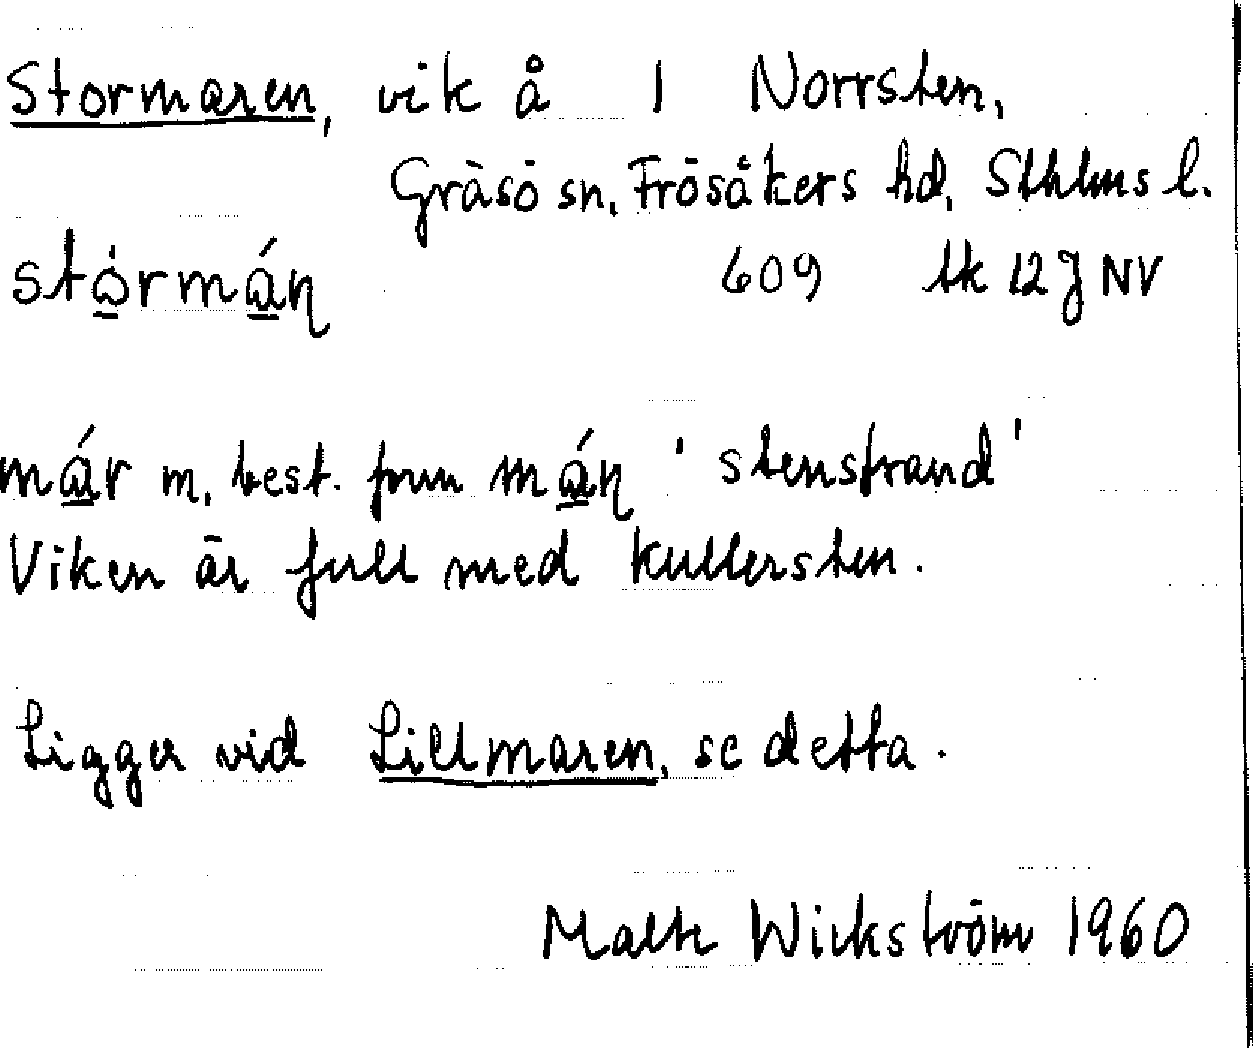 Stormaren, vik å 1 Norrsten,
Gräsö sn, Frösåkers hd, Sthlms l.
609 tk 12J NV
m. best. form ' stenstrand '
Viken är full med kullersten.
Ligger vid Lillmaren, se detta.
Malte Wickström 1960